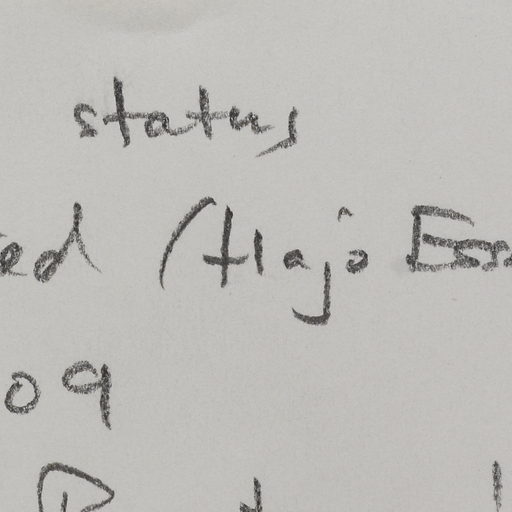 status
ed (Hajo Ess
09